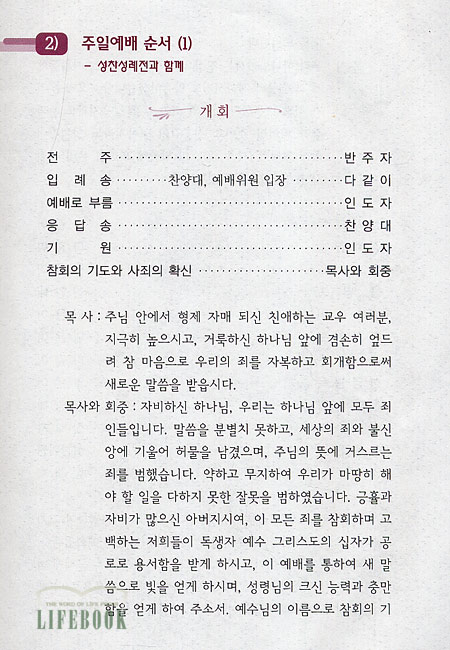 2) 주일예배 순서 (1)
- 성찬성례전과 함께
개 회
전 주 ······························ 반 주 자
입 례 송 ········ 찬양대, 예배위원 입장 ········ 다 같 이
예배로 부름 ······························ 인 도 자
응 답 송 ······························ 찬 양 대
기 원 ······························ 인 도 자
참회의 기도와 사죄의 확신 ···················· 목사와 회중
목 사 : 주님 안에서 형제 자매 되신 친애하는 교우 여러분,
지극히 높으시고, 거룩하신 하나님 앞에 겸손히 엎드
려 참 마음으로 우리의 죄를 자복하고 회개함으로써
새로운 말씀을 받읍시다.
목사와 회중 : 자비하신 하나님, 우리는 하나님 앞에 모두 죄
인들입니다. 말씀을 분별치 못하고, 세상의 죄와 불신
앙에 기울어 허물을 남겼으며, 주님의 뜻에 거스르는
죄를 범했습니다. 약하고 무지하여 우리가 마땅히 해
야 할 일을 다하지 못한 잘못을 범하였습니다. 긍휼과
자비가 많으신 아버지시여, 이 모든 죄를 참회하며 고
백하는 저희들이 독생자 예수 그리스도의 십자가 공
로로 용서함을 받게 하시고, 이 예배를 통하여 새 말
씀으로 빛을 얻게 하시며, 성령님의 크신 능력과 충만
함을 얻게 하여 주소서. 예수님의 이름으로 참회의 기
THE WORD OF LIFE
LIFEBOOK